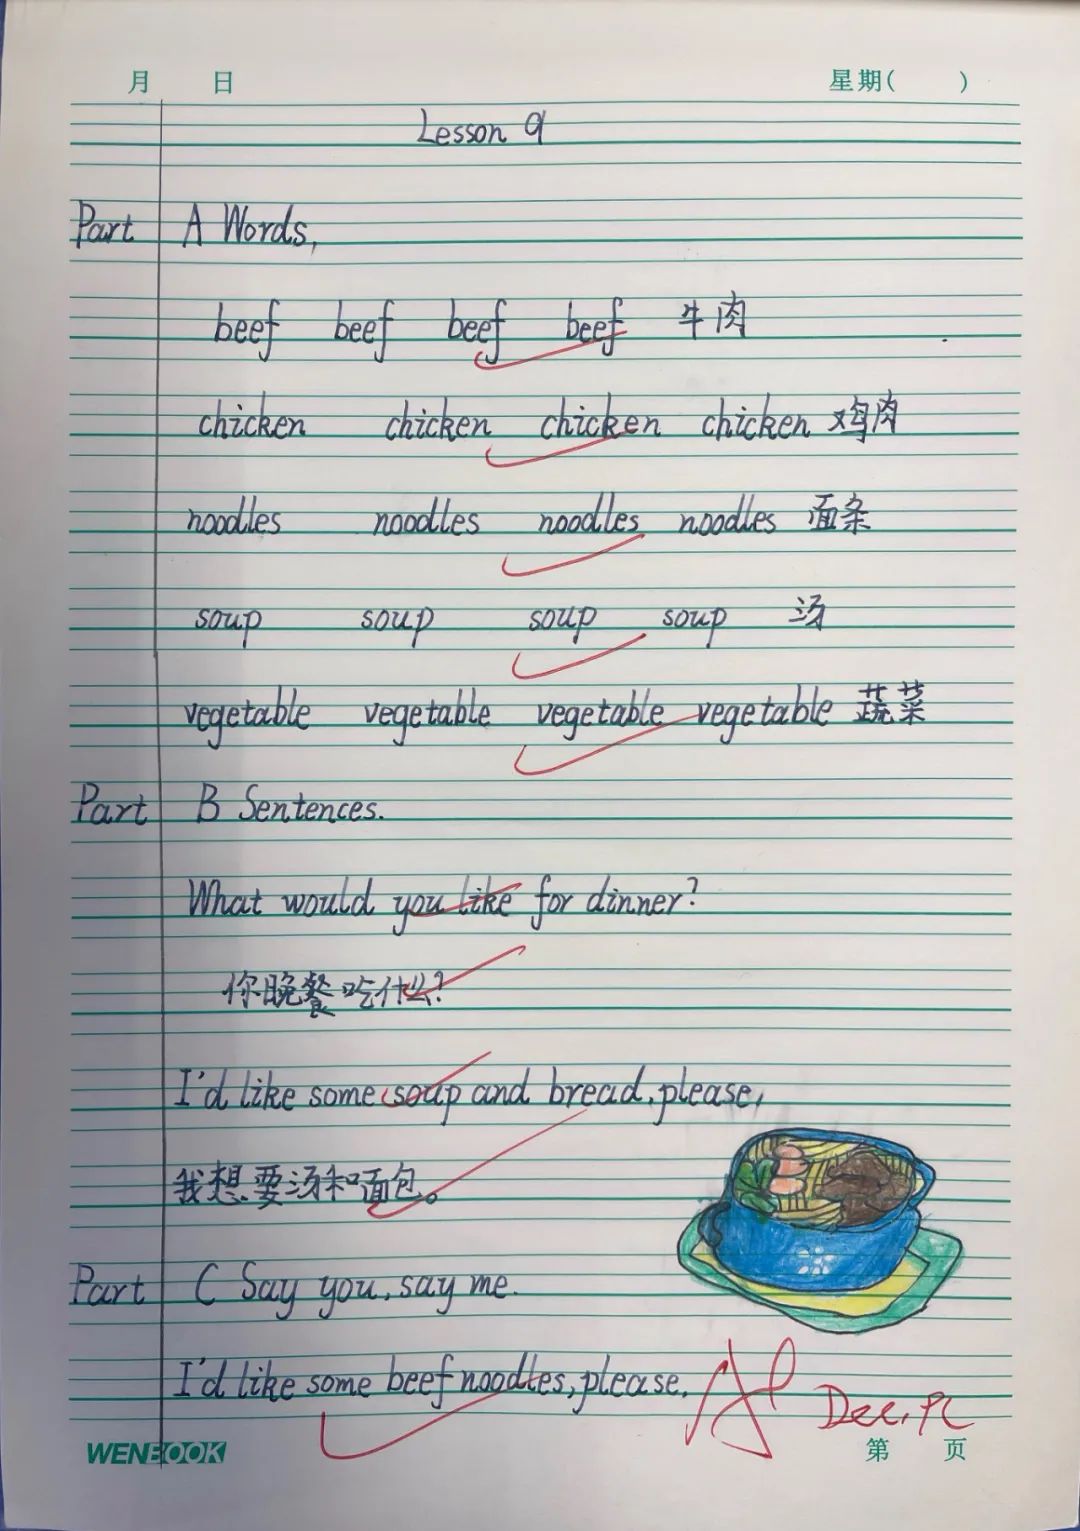 月 日 星期( )
Lesson 9
Part A Words,
beef beef beef beef 牛肉
chicken chicken chicken chicken 鸡肉
noodles noodles noodles noodles 面条
soup soup soup soup 汤
vegetable vegetable vegetable vegetable 蔬菜
Part B Sentences.
What would you like for dinner?
你晚餐吃什么?
I'd like some soup and bread, please,
我想要汤和面包。
Part C Say you, say me.
I'd like some beef noodles, please.
WENBOOK 第 页